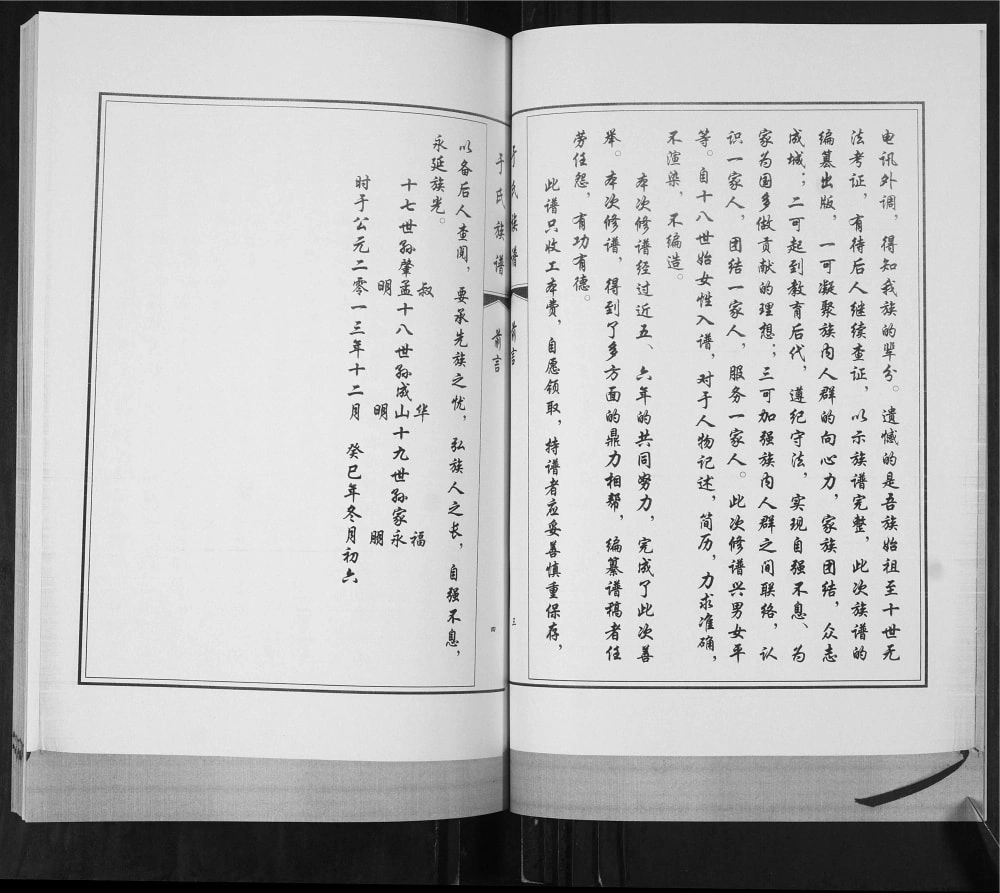 电讯外调，得知我族的辈分。遗憾的是吾族始祖至十世无
法考证，有待后人继续查证，以示族谱完整，此次族谱的
编纂出版，一可凝聚族内人群的向心力，家族团结，众志
成城；二可起到教育后代，遵纪守法，实现自强不息、为
家为国多做贡献的理想；三可加强族内人群之间联络，认
识一家人，团结一家人，服务一家人。此次修谱兴男女平
等。自十八世始女性入谱，对于人物记述，简历，力求准确，
不渲染，不编造。
本次修谱经过近五、六年的共同努力，完成了此次善
举。本次修谱，得到了多方面的鼎力相帮，编纂谱稿者任
劳任怨，有功有德。
此谱只收工本费，自愿领取，持谱者应妥善慎重保存，
于氏族谱 前言 三
于氏族谱 前言 四
以备后人查阅，要承先族之忧，弘族人之长，自强不息，
永延族光。
叔 华 福
十七世孙肇孟十八世孙成山十九世孙家永
明 明 明
时于公元二零一三年十二月 癸巳年冬月初六